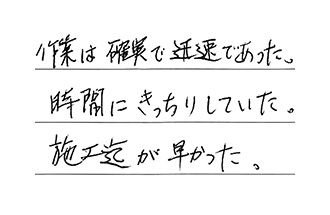 作業は確実で迅速であった。
時間にきっちりしていた。
施工迄が早かった。